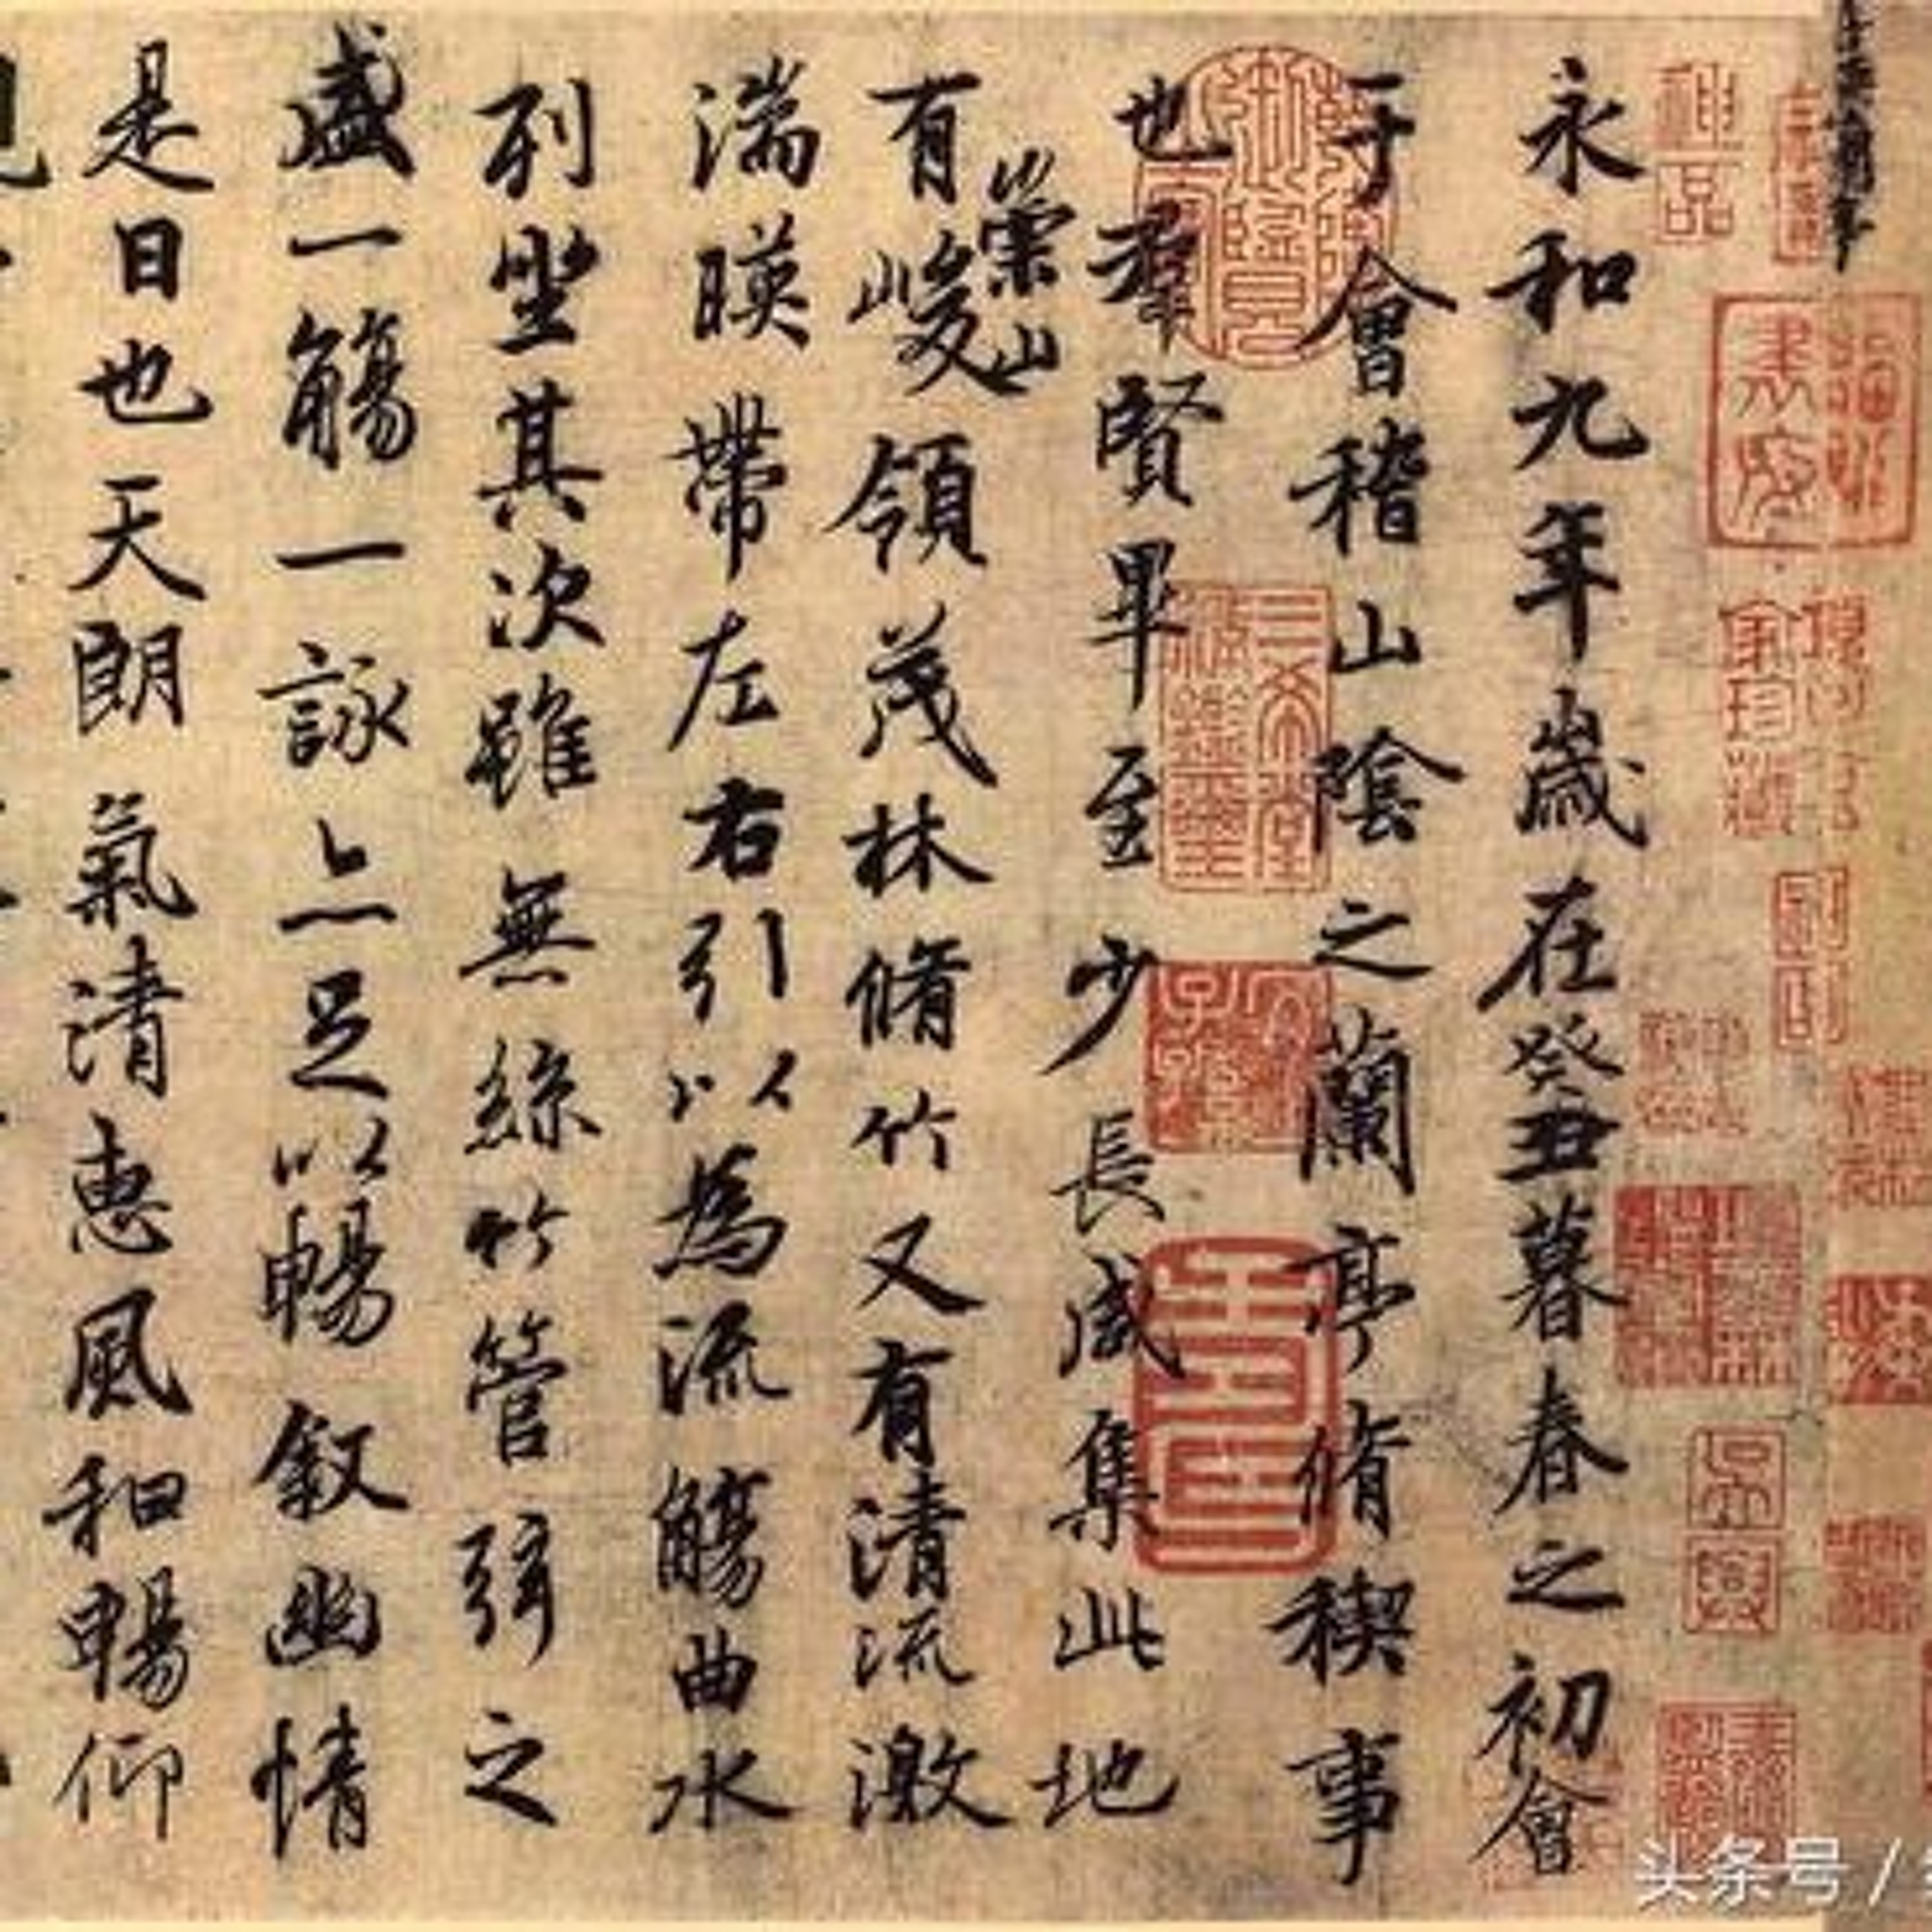 永和九年歲在癸丑暮春之初會
于會稽山陰之蘭亭脩稧事
也羣賢畢至少長咸集此地
有崇山峻領茂林脩竹又有清流激
湍暎帶左右引以為流觴曲水
列坐其次雖無絲竹管弦之
盛一觴一詠亦足以暢敘幽情
是日也天朗氣清惠風和暢仰
神品
三希堂精鑑璽
頭条号 /